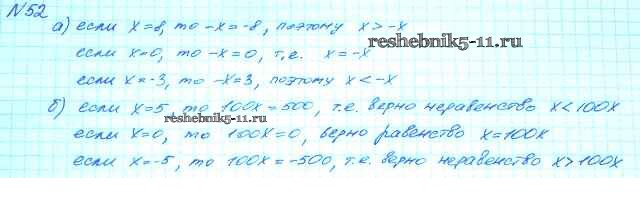 №52
а) если x=8, то -x=-8, поэтому x > -x
reshebnik5-11.ru
если x=0, то -x=0, т.е. x=-x
если x=-3, то -x=3, поэтому x < -x
б) если x=5, то 100x=500, т.е. верно неравенство x<100x
reshebnik5-11.ru
если x=0, то 100x=0, верно равенство x=100x
если x=-5, то 100x=-500, т.е. верно неравенство x>100x